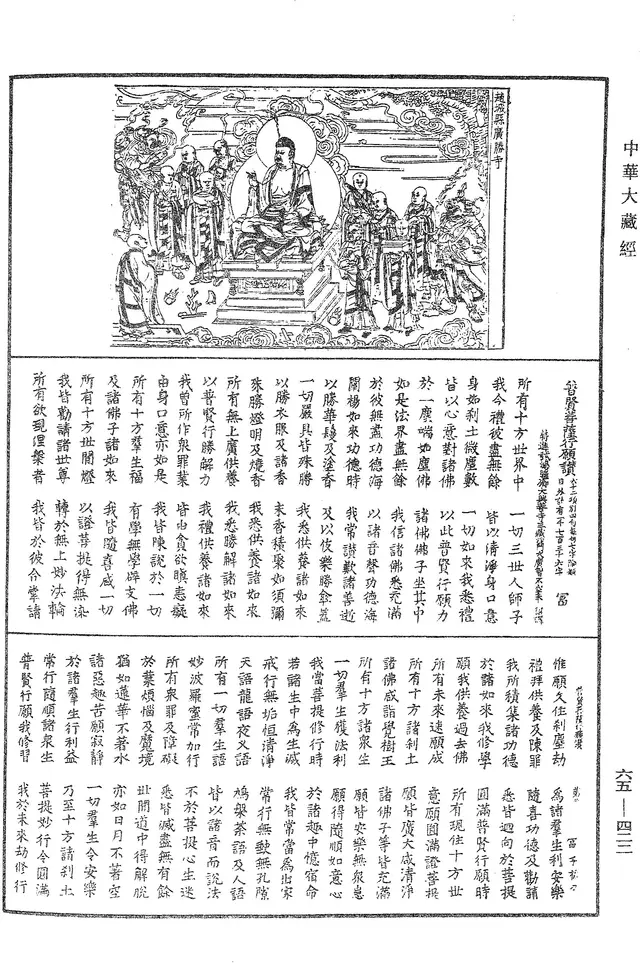 中華大藏經
趙城縣廣勝寺
普賢菩薩行願讚
所有十方世界中 一切三世人師子
我今禮彼盡無餘 皆以清淨身口意
身如剎土微塵數 一切如來我悉禮
皆以心意對諸佛 以此普賢行願力
於一塵端如塵佛 諸佛佛子坐其中
如是法界盡無餘 我信諸佛悉充滿
於彼無盡功德海 以諸音聲功德海
闡揚如來功德時 我常讚歎諸善逝
以勝華鬘及塗香 及以伎樂勝傘蓋
一切嚴具皆殊勝 我悉供養諸如來
以勝衣服及諸香 末香積聚如須彌
殊勝燈明及燒香 我悉供養諸如來
所有無上廣供養 我悉勝解諸如來
以普賢行勝解力 我禮供養諸如來
我曾所作衆罪業 皆由貪欲瞋恚癡
由身口意亦如是 我皆陳說於一切
所有十方羣生福 有學無學辟支佛
及諸佛子諸如來 我皆隨喜咸一切
所有十方世間燈 以證菩提得無染
我皆勸請諸世尊 轉於無上妙法輪
所有欲現涅槃者 我皆於彼合掌請
惟願久住剎塵劫 為諸羣生利安樂
禮拜供養及陳罪 隨喜功德及勸請
我所積集諸功德 悉皆迴向於菩提
於諸如來我修學 圓滿普賢行願時
願我供養過去佛 所有現住十方世
所有未來速願成 意願圓滿證菩提
所有十方諸剎土 願皆廣大咸清淨
諸佛咸詣覺樹王 諸佛子等皆充滿
所有十方諸衆生 願皆安樂無衆患
一切羣生獲法利 願得隨順如意心
我當菩提修行時 於諸趣中憶宿命
若諸生中為生滅 我皆常當為出家
戒行無垢恒清淨 常行無缺無孔隙
天語龍語夜叉語 鳩槃荼語及人語
所有一切羣生語 皆以諸音而說法
妙波羅蜜常加行 不於菩提心生迷
所有衆罪及障礙 悉皆滅盡無有餘
於業煩惱及魔境 世間道中得解脫
猶如蓮華不著水 亦如日月不著空
諸惡趣苦願寂靜 一切羣生令安樂
於諸羣生行利益 乃至十方諸剎土
常行隨順諸衆生 菩提妙行令圓滿
普賢行願我修習 我於未來劫修行
六五—四二二